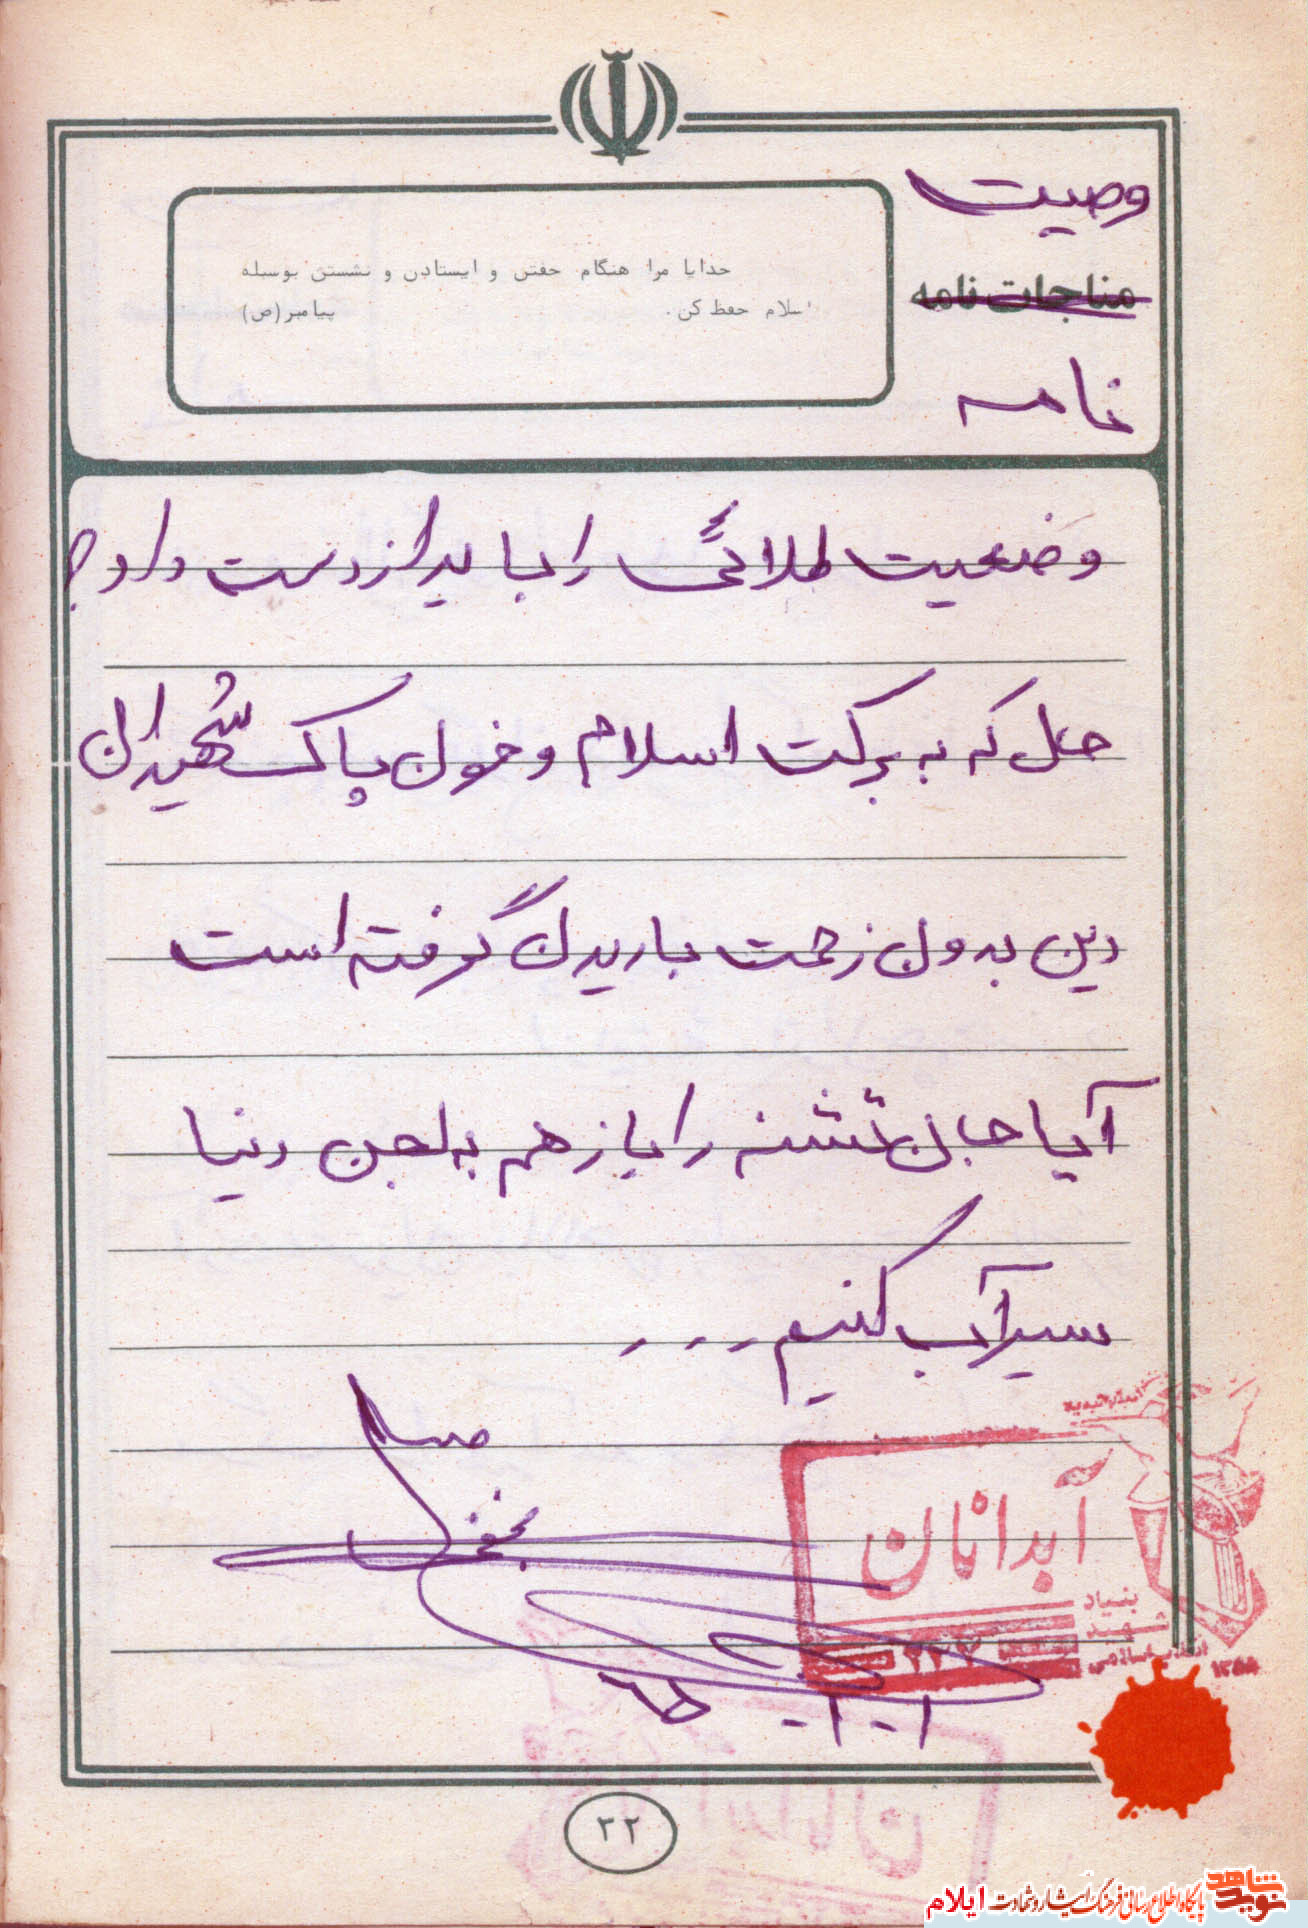 وصیت
مناجات نامه
نامه
خدایا مرا هنگام خفتن و ایستادن و نشستن بوسیله
اسلام حفظ کن. پیامبر(ص)
وضعیت طلائی را نباید از دست داد و
حال که به برکت اسلام و خون پاک شهیدان
دین بدون زحمت باریدن گرفته است
آیا جان تشنه را باز هم به لجن دنیا
سیرآب کنیم ...
آبدانان
بنیاد
شهید
انقلاب اسلامی
۲۲
پایگاه اطلاع رسانی فرهنگ ایثار و شهادت ایلام
نوید شاهد